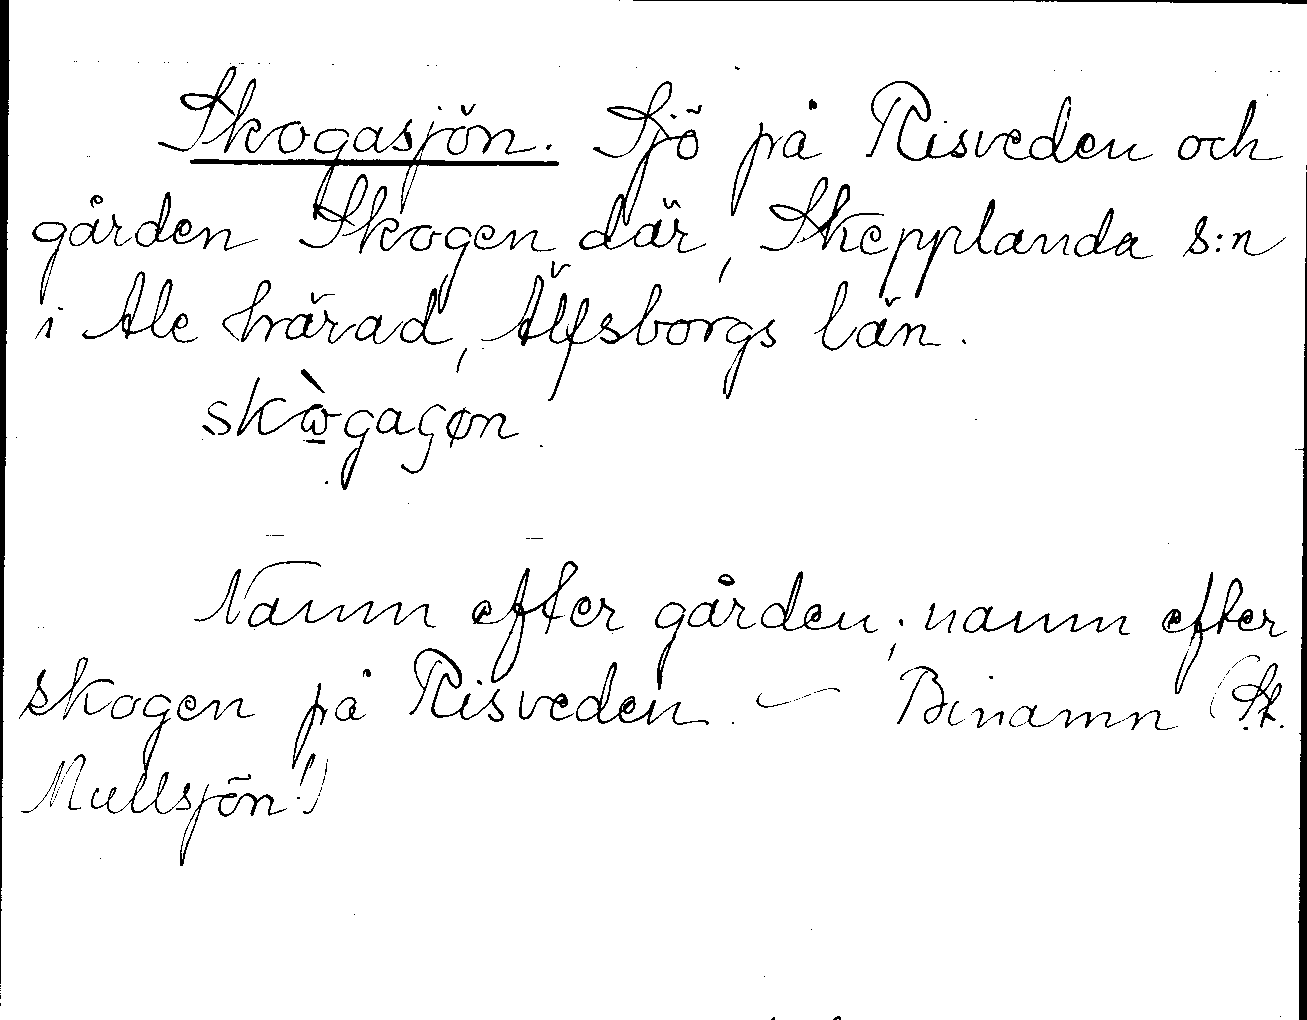 Skogasjön. Sjö på Risveden och
gården Skogen där, Skepplanda s:n
i Ale härad, Älfsborgs län.
skὼgaςøn
Namn efter gården; namn efter
skogen på Risveden. – Binamn (St.
Mullsjön!)